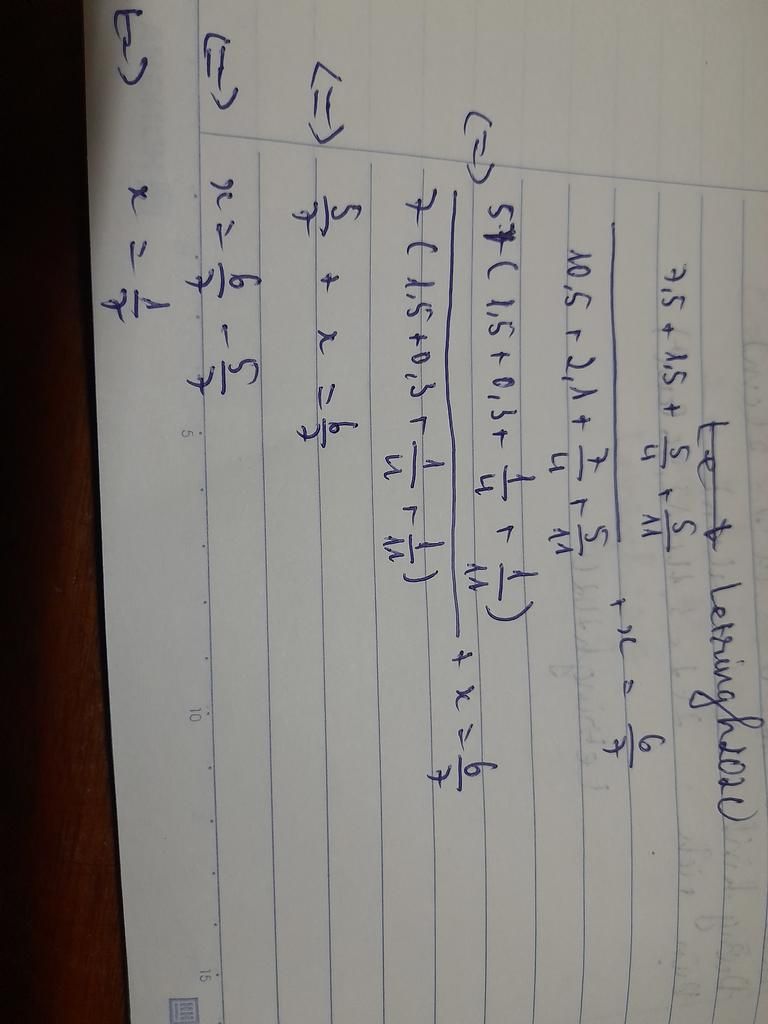 letringh2020
7,5 + 1,5 + 5/4 + 5/11
10,5 + 2,1 + 7/4 + 5/11 + x = 6/7
(=) 5 ( 1,5 + 0,3 + 1/4 + 1/11 )
7 ( 1,5 + 0,3 + 1/4 + 1/11 ) + x = 6/7
(=) 5/7 + x = 6/7
(=) x = 6/7 - 5/7
(=) x = 1/7
5
10
15